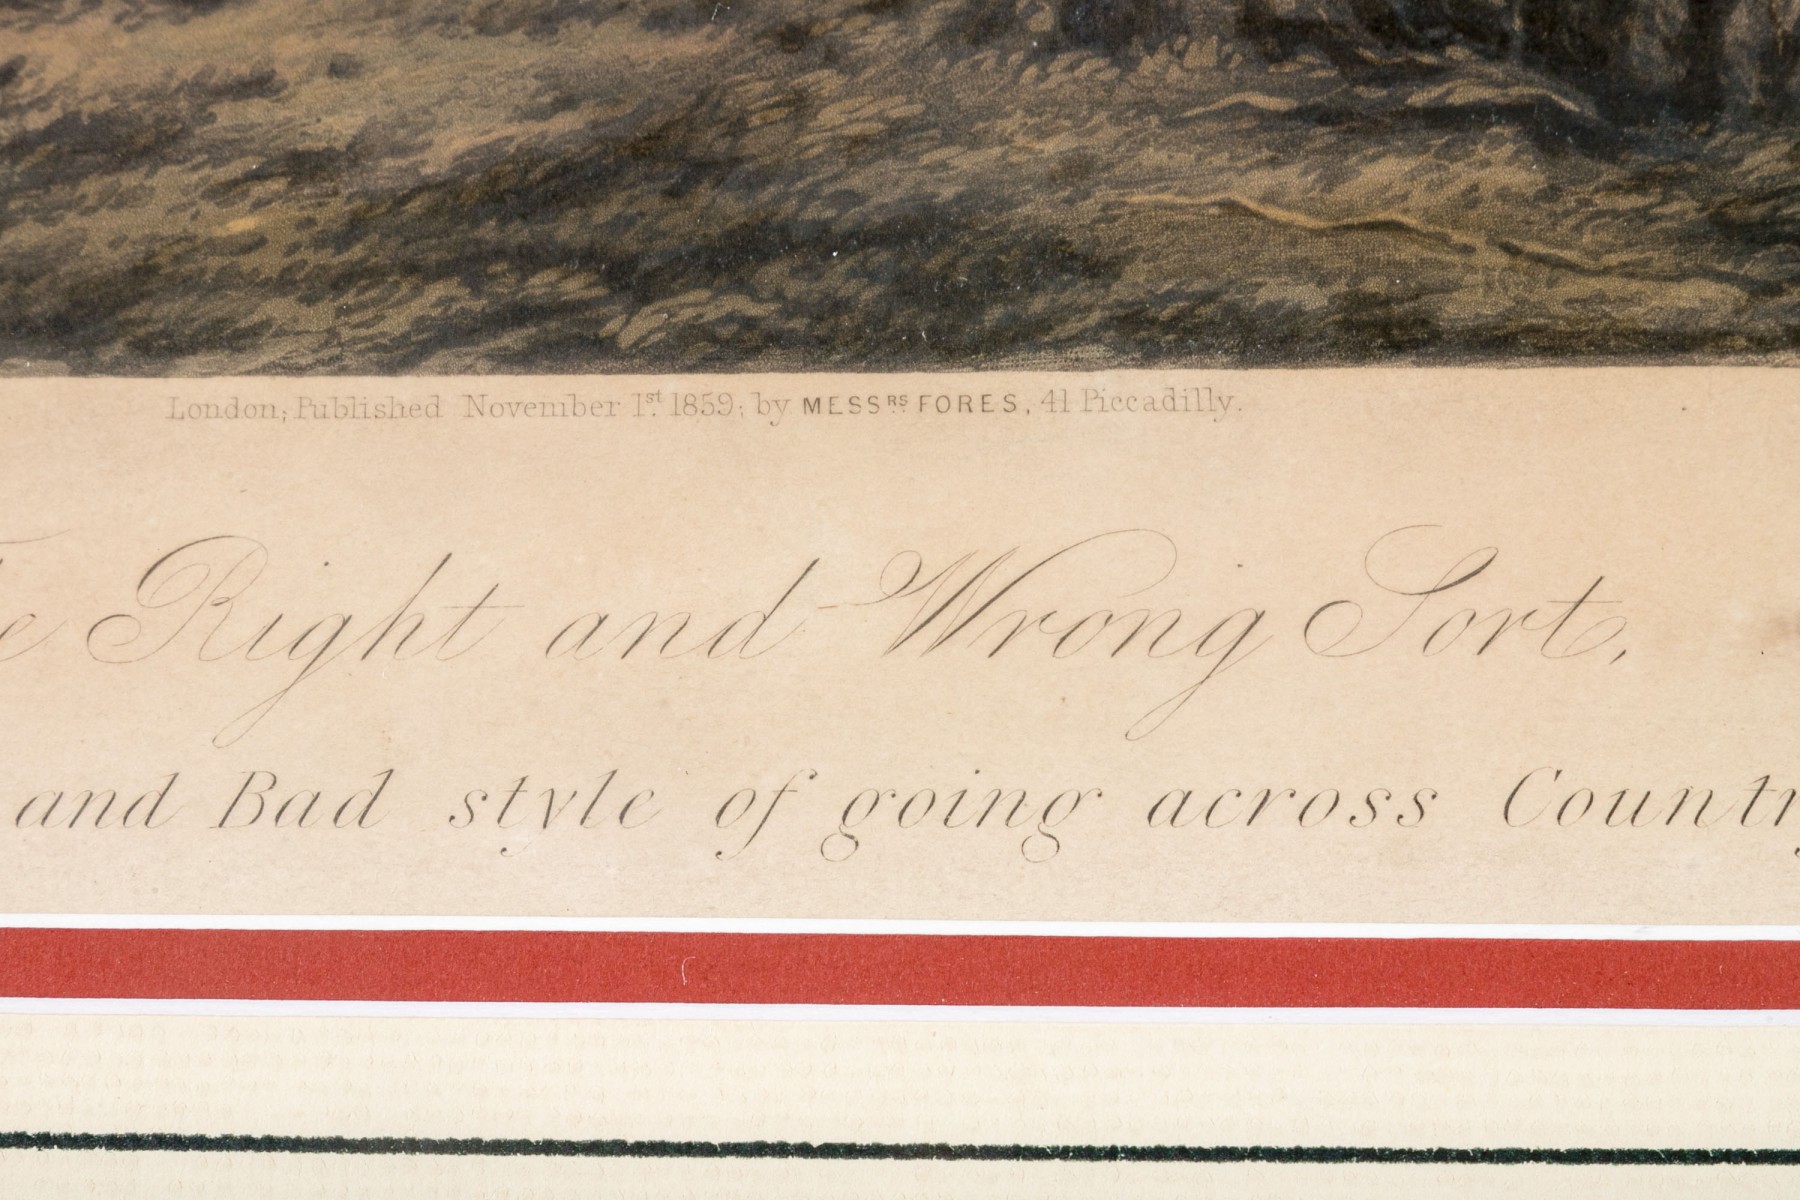 London; Published November 1st. 1859; by MESSRS. FORES, 41 Piccadilly.
Right and Wrong Sort,
and Bad style of going across